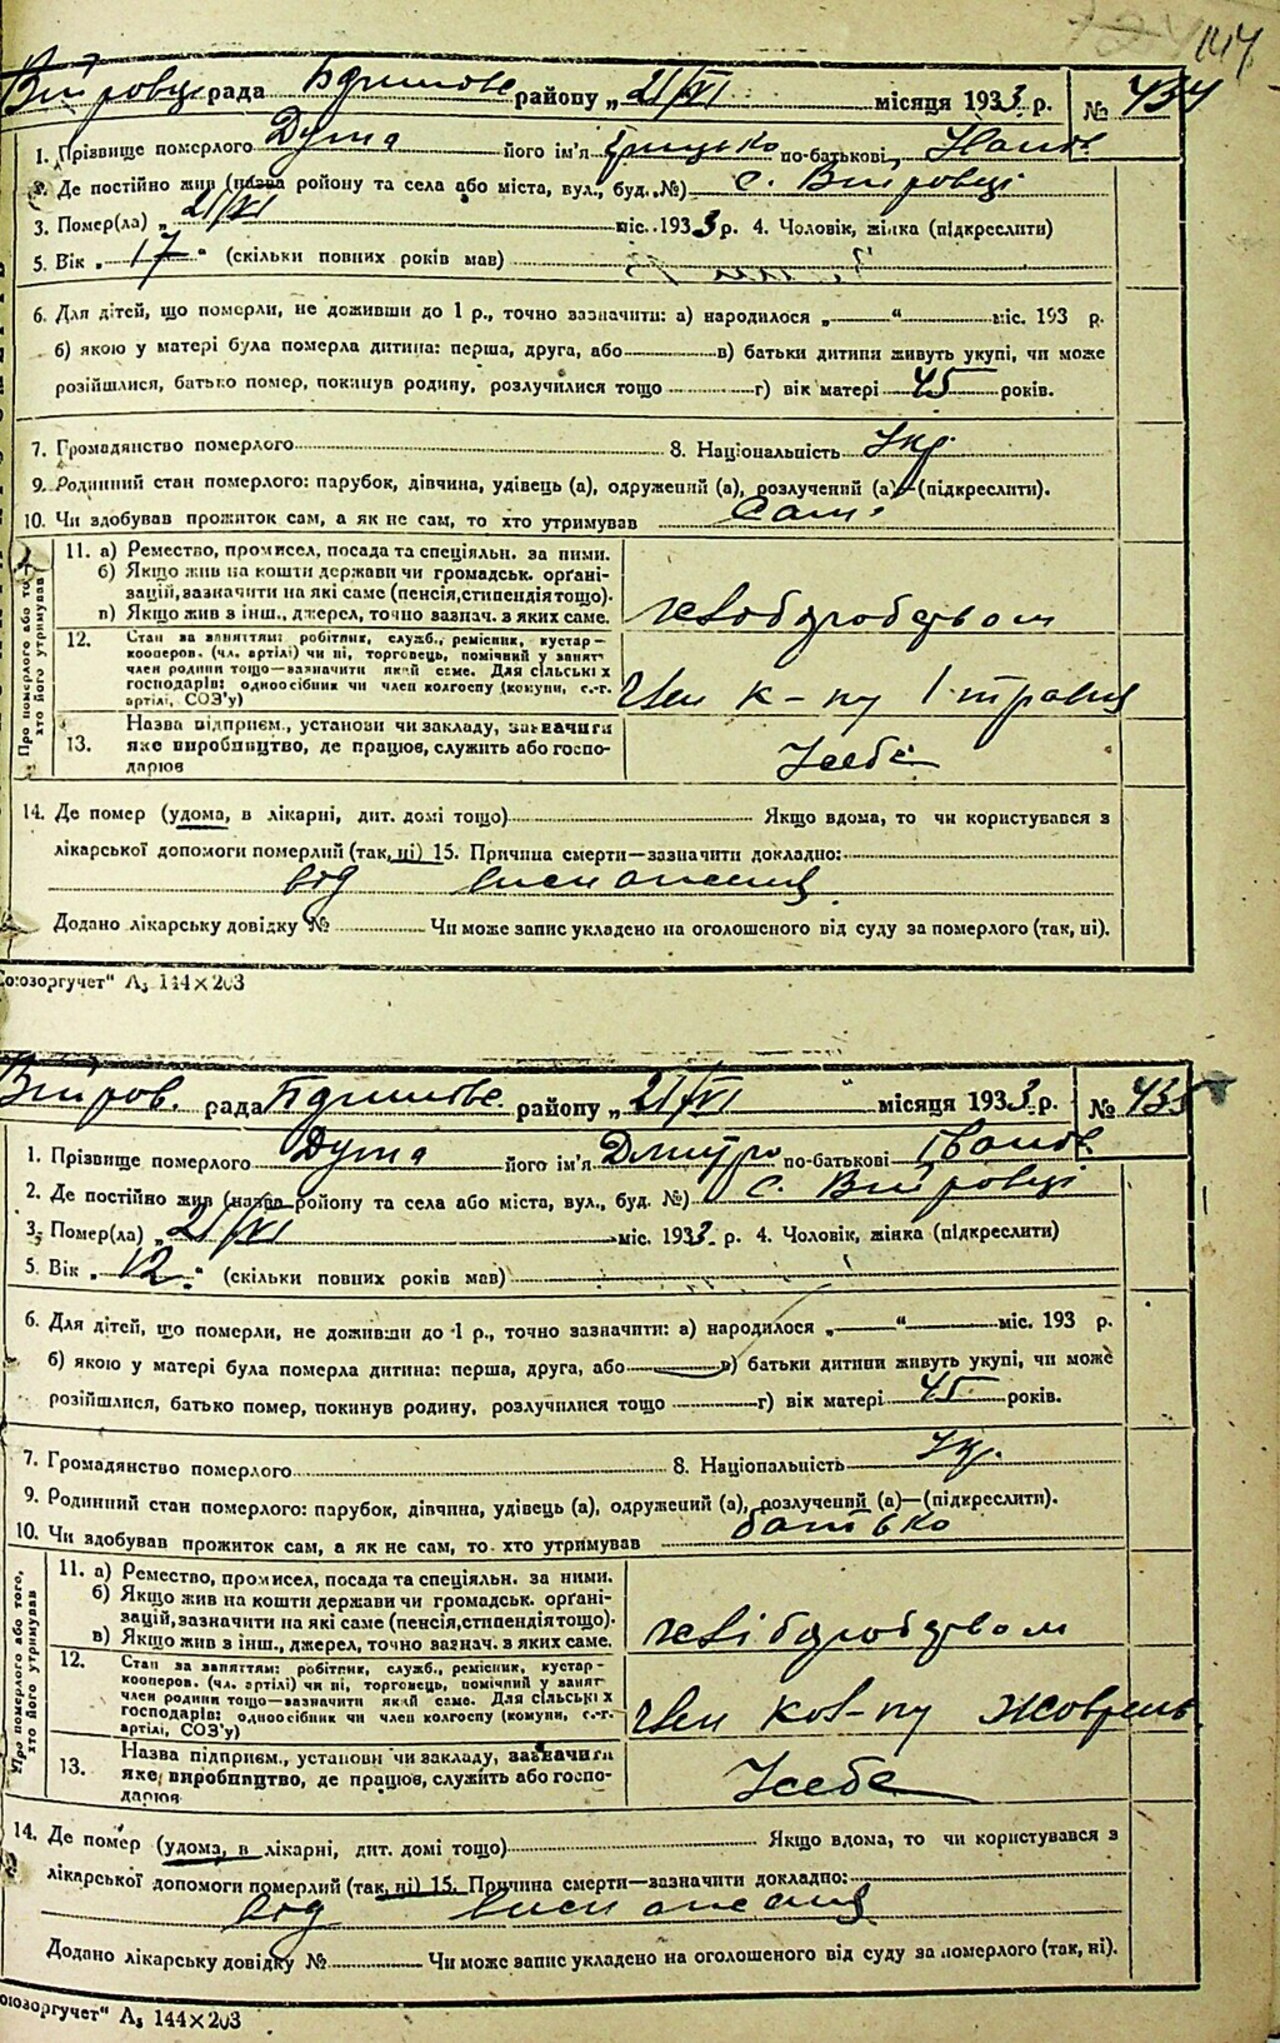 147
рада району „21/VI місяця 1933 р. № 434
1. Прізвище померлого Дута його ім'я Грицько по-батькові
2. Де постійно жив (назва ройону та села або міста, вул., буд. №) с.
3. Помер(ла) „21/VI міс. 1933 р. 4. Чоловік, жінка (підкреслити)
5. Вік „17“ (скільки повних років мав)
6. Для дітей, що померли, не доживши до 1 р., точно зазначити: а) народилося „ “ міс. 193 р.
б) якою у матері була померла дитина: перша, друга, або в) батьки дитини живуть укупі, чи може
розійшлися, батько помер, покинув родину, розлучилися тощо г) вік матері 45 років.
7. Громадянство померлого 8. Національність Укр.
9. Родинний стан померлого: парубок, дівчина, удівець (а), одружений (а), розлучений (а)—(підкреслити).
10. Чи здобував прожиток сам, а як не сам, то хто утримував Сам.
Про померлого або того, хто його утримував
11. а) Ремество, промисел, посада та спеціяльн. за ними.
б) Якщо жив на кошти держави чи громадськ. орґані-
зацій, зазначити на які саме (пенсія, стипендія тощо).
в) Якщо жив з інш., джерел, точно зазнач. з яких саме.
хліборобством
12. Стан за заняттям: робітник, служб., ремісник, кустар—
кооперов. (чл. артілі) чи ні, торговець, помічний у занят
член родини тощо—зазначити який саме. Для сільськіх
господарів: одноосібник чи член колгоспу (комуни, с.-г.
артілі, СОЗ'у)
Член к-пу 1 травня
13. Назва підприєм., установи чи закладу, зазначити
яке виробництво, де працює, служить або госпо-
дарюв
У себе
14. Де помер (удома, в лікарні, дит. домі тощо) Якщо вдома, то чи користувався з
лікарської допомоги померлий (так, ні) 15. Причина смерти—зазначити докладно:
від виснаження
Додано лікарську довідку № Чи може запис укладено на оголошеного від суду за померлого (так, ні).
оюзоргучет" А₅ 144×203
рада району „21/VI місяця 1933 р. № 435
1. Прізвище померлого Дута його ім'я Дмитро по-батькові Іванов.
2. Де постійно жив (назва ройону та села або міста, вул., буд. №) с.
3. Помер(ла) „21/VI міс. 1933 р. 4. Чоловік, жінка (підкреслити)
5. Вік „12“ (скільки повних років мав)
6. Для дітей, що померли, не доживши до 1 р., точно зазначити: а) народилося „ “ міс. 193 р.
б) якою у матері була померла дитина: перша, друга, або в) батьки дитини живуть укупі, чи може
розійшлися, батько помер, покинув родину, розлучилися тощо г) вік матері 45 років.
7. Громадянство померлого 8. Національність Укр.
9. Родинний стан померлого: парубок, дівчина, удівець (а), одружений (а), розлучений (а)—(підкреслити).
10. Чи здобував прожиток сам, а як не сам, то хто утримував батько
Про померлого або того, хто його утримував
11. а) Ремество, промисел, посада та спеціяльн. за ними.
б) Якщо жив на кошти держави чи громадськ. орґані-
зацій, зазначити на які саме (пенсія, стипендія тощо).
в) Якщо жив з інш., джерел, точно зазнач. з яких саме.
хліборобством
12. Стан за заняттям: робітник, служб., ремісник, кустар-
кооперов. (чл. артілі) чи ні, торговець, помічний у занят
член родини тощо—зазначити який саме. Для сільськіх
господарів: одноосібник чи член колгоспу (комуни, с.-г.
артілі, СОЗ'у)
Член кол-пу Жовтень
13. Назва підприєм., установи чи закладу, зазначити
яке виробництво, де працює, служить або госпо-
дарюв
У себе
14. Де помер (удома, в лікарні, дит. домі тощо) Якщо вдома, то чи користувався з
лікарської допомоги померлий (так, ні) 15. Причина смерти—зазначити докладно:
від виснаження
Додано лікарську довідку № Чи може запис укладено на оголошеного від суду за померлого (так, ні).
оюзоргучет" А₅ 144×203